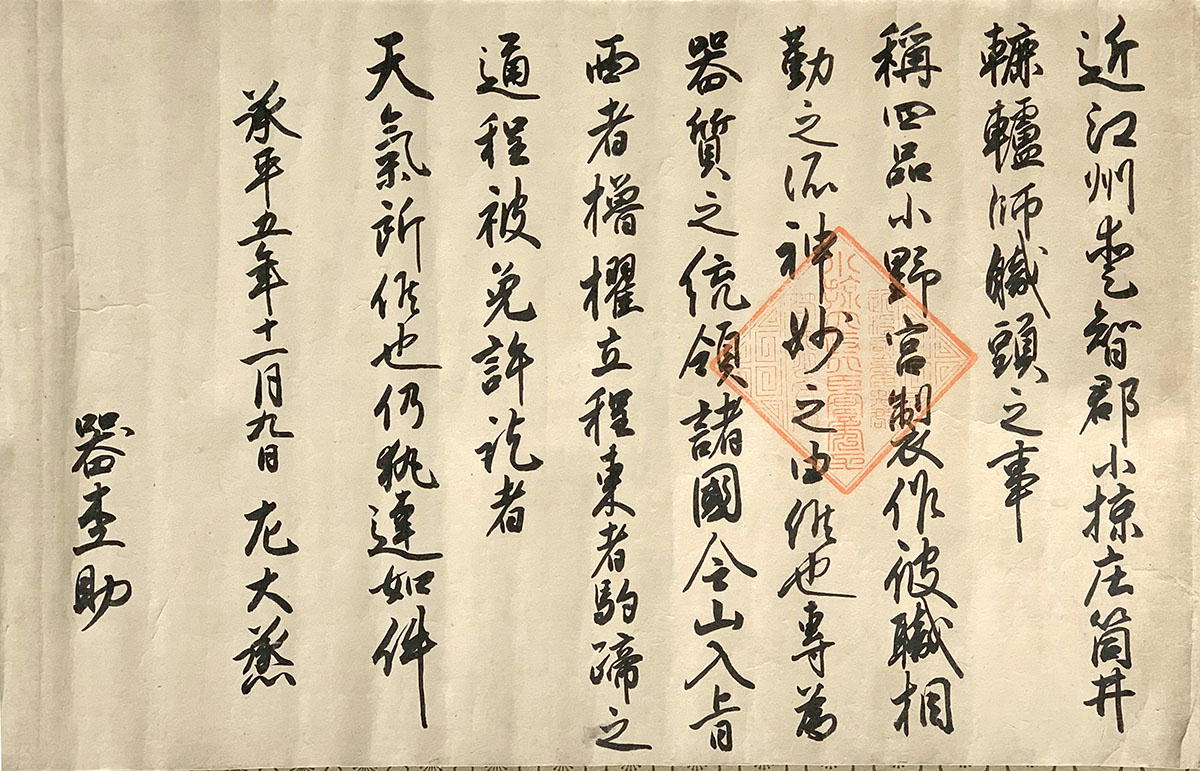 近江州愛智郡小掠庄筒井
轆轤師職頭之事
稱四品小野宮製作彼職相
勤之所神妙之由候也專為
器質之統領諸國令山入旨
西者櫓櫂立程東者駒蹄之
通程被免許訖者
天氣所候也仍執達如件
承平五年十一月九日 左大丞
器杢助